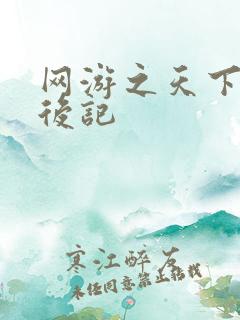 网游之天下
後記
寒江醉友
未经同意禁止转载